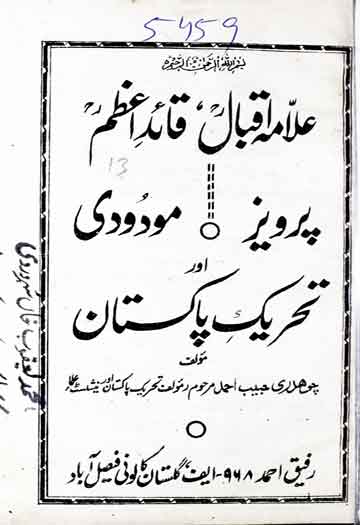 5459
بسم اللہ الرحمن الرحیم
علامہ اقبالؒ، قائدِ اعظمؒ
13
پرویز مودودی
اور
تحریکِ پاکستان
مؤلف
چوھدری حبیب احمد مرحوم (مؤلف تحریک پاکستان اور نیشنلسٹ علماء)
رفیق احمد ۹۶۸- ایف، گلستان کالونی فیصل آباد